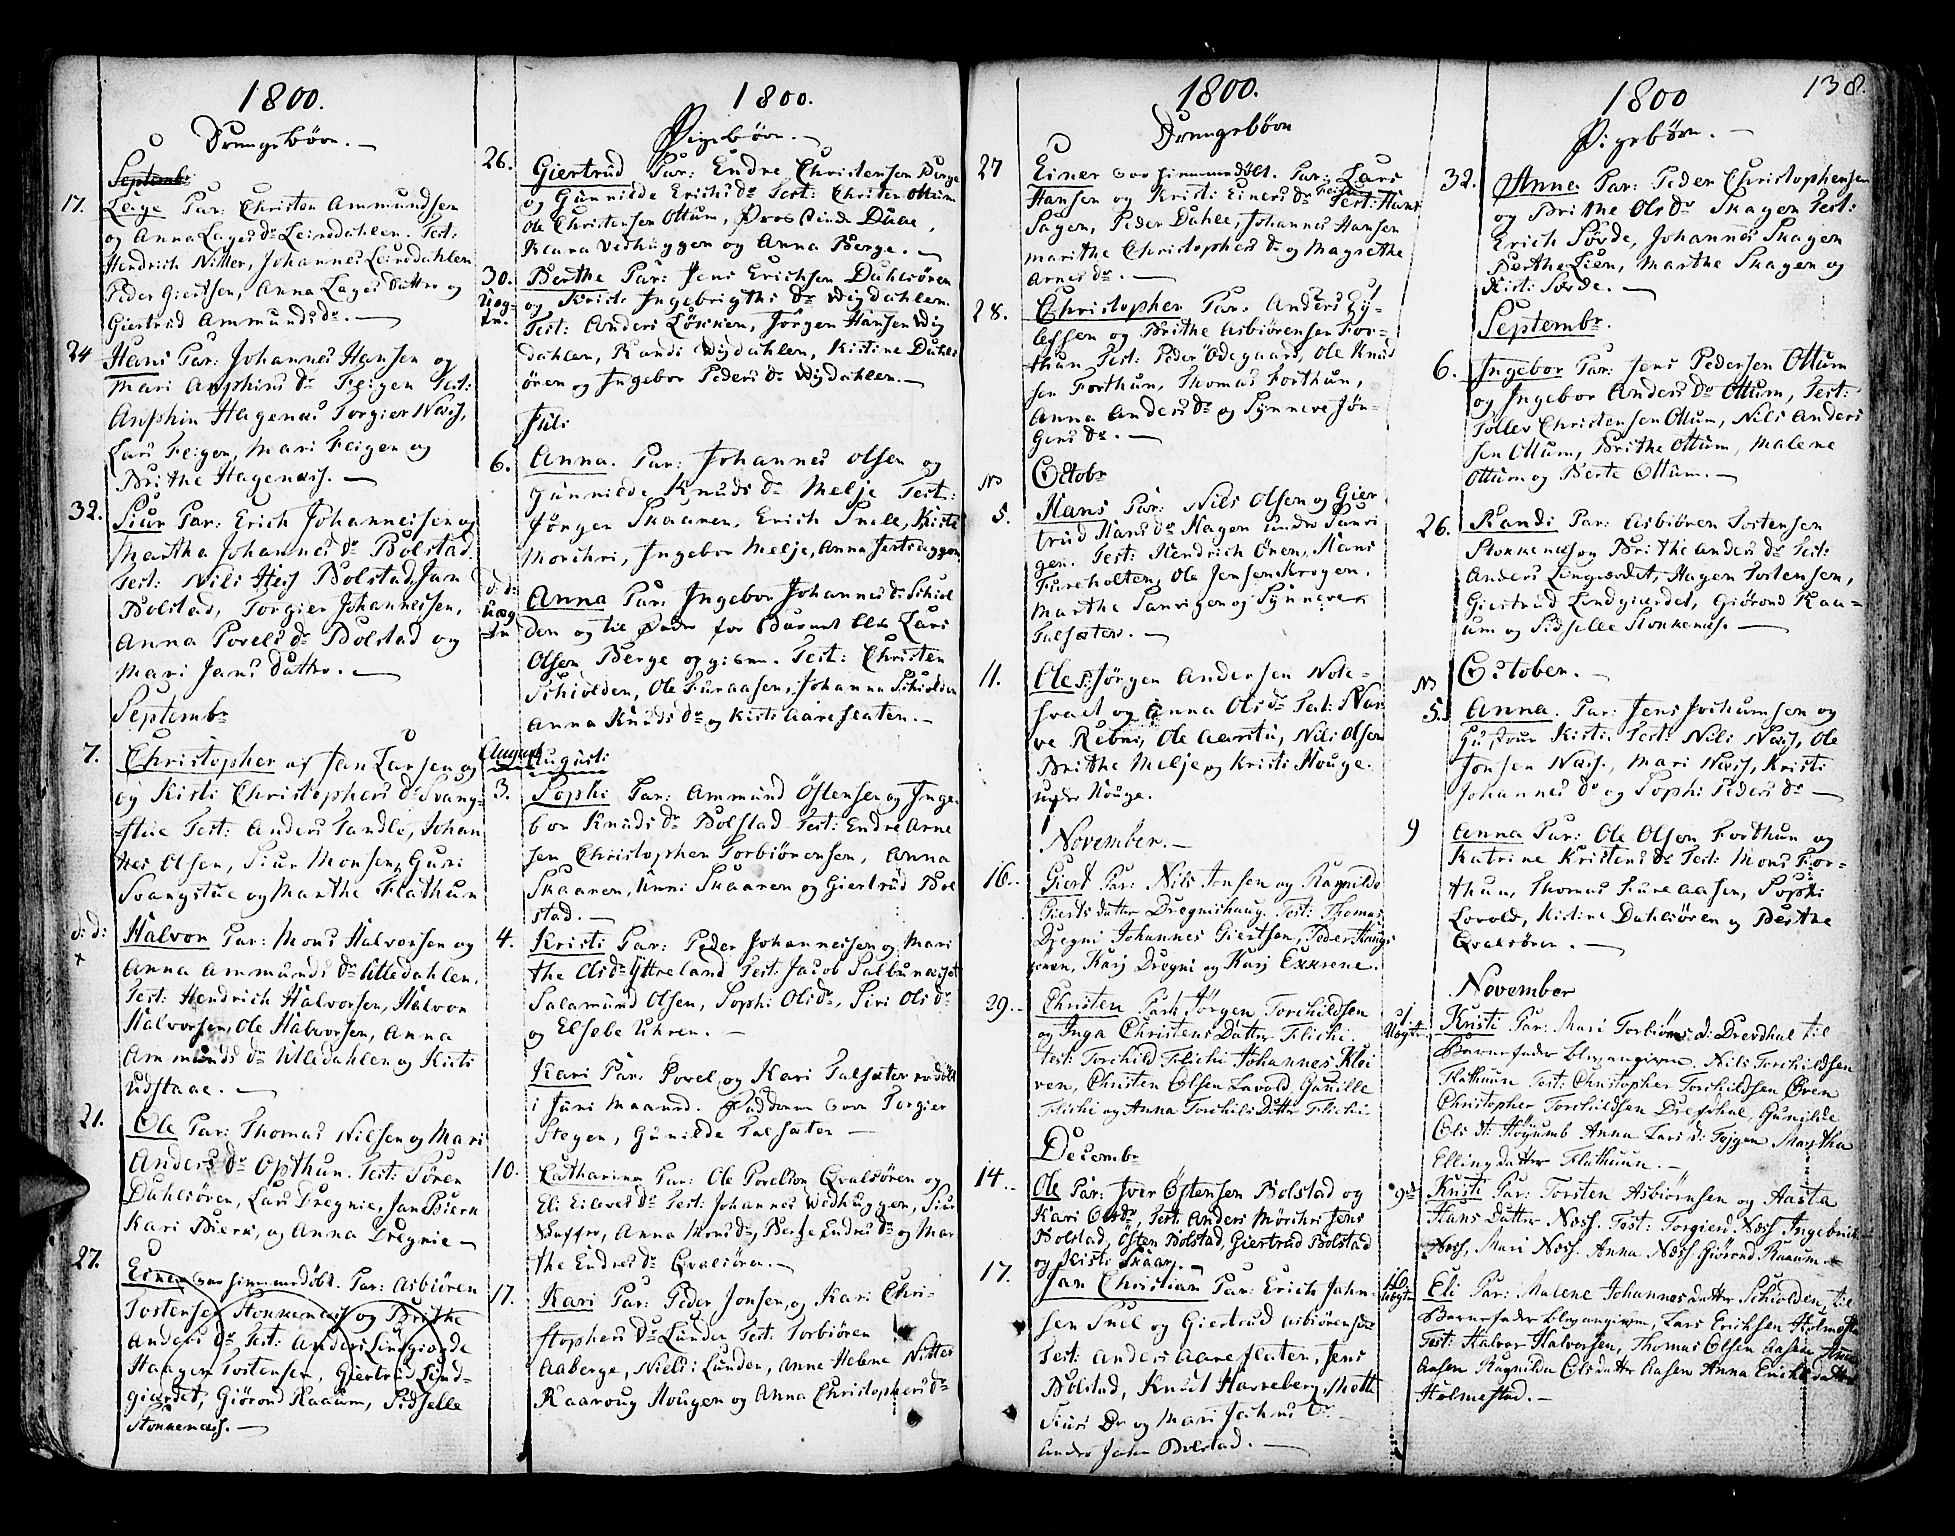 1800.
Drengebørn. —
Septembr
17. Leige Par: Christen Ammundsen
og Anna Lagesdr Leirdahlen. Test:
Hendrich Nitter, Johannes Leirdahlen
Peder Giertsen, Anna Lages Datter og
Giertrud Ammundsdr. —
24 Hans Par: Johannes Hansen og
Mari Anphinsdr Feigen Test:
Anphin Hagenæs Torgier Næss,
Lars Feigen, Mari Feigen og
Brithe Hagenæs. —
32. Siur Par: Erich Johannessen og
Martha Johannesdr Bolstad.
Test: Nils Bolstad, Jan
Bolstad, Torgier Johannessen,
Anna Povelsdr Bolstad og
Mari Jens Datter. —
Septembr
7. Christopher af Jan Larsen og
og Kisti Christophersdr Svang-
stue Test: Anders Sandle, Johan
nes Olsen, Siur Monsen, Guri
Svangstue og Marthe Flathun
d: d: Halvor Par: Mons Halvorsen og
Anna Ammundsdr Uttedahlen.
Test: Hendrich Halvorsen, Halvor
Halvorsen, Ole Halvorsen, Anna
Ammundsdr Uttedahlen og Kisti
Udstaae. —
21. Ole Par: Thomas Nilsen og Mari
Andersdr Opthun. Test: Søren
Dahlsøren, Lars Dregnie, Jan Bierk
Kari Bierk, og Anna Dregnie —
27. Einer Par: Asbiøren
Tostensen Stonkenæs og Brithe
Andersdr Test: Anders Lingiorde
Haagen Tostensen, Giertrud Lind-
gierdet, Giørond Kaaum, Sidselle
Stonkenæs. —
1800.
Pigebørn. —
26. Giertrud Par: Endre Christensen Berge
og Gunnilde Erichsdr Test: Christen Ottum
Ole Christensen Ottum,
Klara Vedhuggen og Anna Berge. —
30. Berthe Par: Jens Erichsen Dahlsøren
Uægte. og Kristi Ingebrigthsdr Wigdahlen.
Test: Anders Løkken, Jørgen Hansen Wig
dahlen, Randi Wigdahlen, Kistine Dahls
øren og Ingebor Pedersdr Wigdahlen. —
Juli
6. Anna. Par: Johannes Olsen og
Gunnilde Knudsdr Melje Test:
Jørgen Skaanen, Erich Snele, Kristi
Morchri, Ingebor Melje, Anna
d: d: Anna Par: Ingebor Johannesdr Schiol
den og til Fader for Barnet blev Lars
Olsen Berge opgiven. Test: Christen
Schiolden, Ole Furaasen, Johanna Schiolden
Anna Knudsdr og Kisti Aareflaten. —
Augusti
3. Sophi Par: Ammund Østensen og Inge
bor Knudsdr Bolstad Test: Endre Arne
sen Christopher Torbiørensen, Anna
Skaanen, Anni Skaanen og Giertrud Bol
stad. —
4. Kristi Par: Peder Johannessen og Mari
the Olsdr Yttreland Test: Jacob
Salamund Olsen, Sophi Olsdr, Siri Olsdr
og Elsebe Uhren. —
Kari Par: Povel og Kari Talsæter
i Juni Maaned. Fadderne vare Torgier
Stegen, Gunilde Talsæter —
10. Catharina Par: Ole Povelsen Qvalsøren og
Eli Eilevsdr Test: Johannes Wedhuggen, Siur
Anna Monsdr, Berthe Endresdr og Mar
the Endresdr Qvalsøren. —
17. Kari Par: Peder Jonsen, og Kari Chri-
stophersdr Lunden Test: Torbiøren
Aaberge, Niels Lunden, Anne Helene Nitter
Kaaroug Hougen og Anna Christophersdr
1800.
Drengebørn
27 Einer Par: Lars
Hansen og Kristi Einersdr Test: Hans
Sagen, Peder Dahle, Johannes Hansen
Marithe Christophersdr og Magrethe
Arnesdr. —
28. Christopher Par: Anders Ey-
lefsen og Brithe Asbiørensen For-
thun Test: Peder Ødegaard, Ole Knud
sen Forthun, Thomas Forthun,
Anna Andersdr og Synneve Jør-
gensdr. —
Octobr
5. Hans Par: Nils Olsen og Gier
trud Hansdr Hagen under Sanvi
gen. Test: Hendrich Ønen, Hans
Fureholten, Ole Jensen Krogen,
Marthe Sanvigen og Synneve
Talsæter. —
11. Ole Jørgen Andersen Note-
svael og Anna Olsdr Test: Nar-
ve Rebni, Ole Nils Olsen
Brithe Melje og Kristi Houge.
under Houge.
November. —
16.. Giert Par: Nils Jensen og Ragnilde
Gierts datter Dregnishaug. Test: Thomas
Dregni Johannes Giertsen, Peder Haugs
øren, Kari Dregni og Kari Exxrene.
29.. Christen Jørgen Torchildsen
og Inga Christens Datter Flichi
Test: Torchild Flichi Johannes Klei
ven, Christen Olsen Lavold Gunille
Flichi og Anna Torchilds Dattr Flichi
Decembr
14.. Ole Par: Iver Østensen Bolstad og
Kari Olsdr, Test: Anders Mörchri Jens
Bolstad, Østen Bolstad, Giertrud Bolstad
og Kisti Skaar. —
17. Jan Christian Par: Erich Jahn-
sen Snel og Giertrud Asbiørensdr
Test: Anders Aareflaten, Jens
Bolstad, Knud Harreberg,
Siurs Dr og Mari Jahns Dr
Anders Jahn Bolstad. —
1800
138.
Pigebørn. —
32. Anne Par: Peder Christophersen
og Brithe Olsdr Skagen Test:
Erich Sørde, Johannes Skagen
Berthe Lien, Marthe Skagen og
Kisti Sørde. —
Septembr.
6. Ingebor Par: Jens Pedersen Ottum
og Ingebor Andersdr Ottum, Test:
Tollev Christensen Ottum, Nils Anders
sen Ottum, Brithe Ottum, Malene
Ottum og Berte Ottum. —
26. Randi Par: Asbiøren Tostensen
Stonkenæs og Brithe Andersdr Test:
Anders Lingiordet, Hagen Tostensen,
Giertrud Lendgierdet, Giørond Kaa-
um og Sidselle Stonkenæs. —
October. —
5. Anna. Par: Jens Jochumsen og
Kisti Test: Nils Næss, Ole
Jonsen Næss, Mari Næss, Kristi
Johannesdr og Sophi Pedersdr —
9 Anna Par: Ole Olsen Forthun og
Katrine Kristensdr Test: Mons For-
thun, Thomas Fureaasen, Sophi
Lovold, Kistine Dahlsøren og Berthe
Qvalsøren. —
November
Uægte Kristi Par: Mari Torbiørnsd: Drevdhal til
Barnefader blev angiven Nils Torchildsen
Flathuun Test: Christopher Torchildsen
Christopher Torchildsen Gunilde
Ols dt: Anna Lars d: Martha
Ellings datter Flathuun. —
9de Kristi Par: Torsten Asbiørnsen og Aasta
Hans Datter Næss. Test: Torgierd Næss Ingebrik
Næss, Mari Næss, Anna Næss Giørond Kaaum.
16. Uægte Eli Par: Malene Johannesdatter Schiolden, til
Barnefader blev angiven, Lars Eriksen Holmestad
Test: Halvor Halvorsen, Thomas Olsen Aasen
Aasen Ragnilda Olsdatter Aasen Anna Eriks datter
Holmestad. —